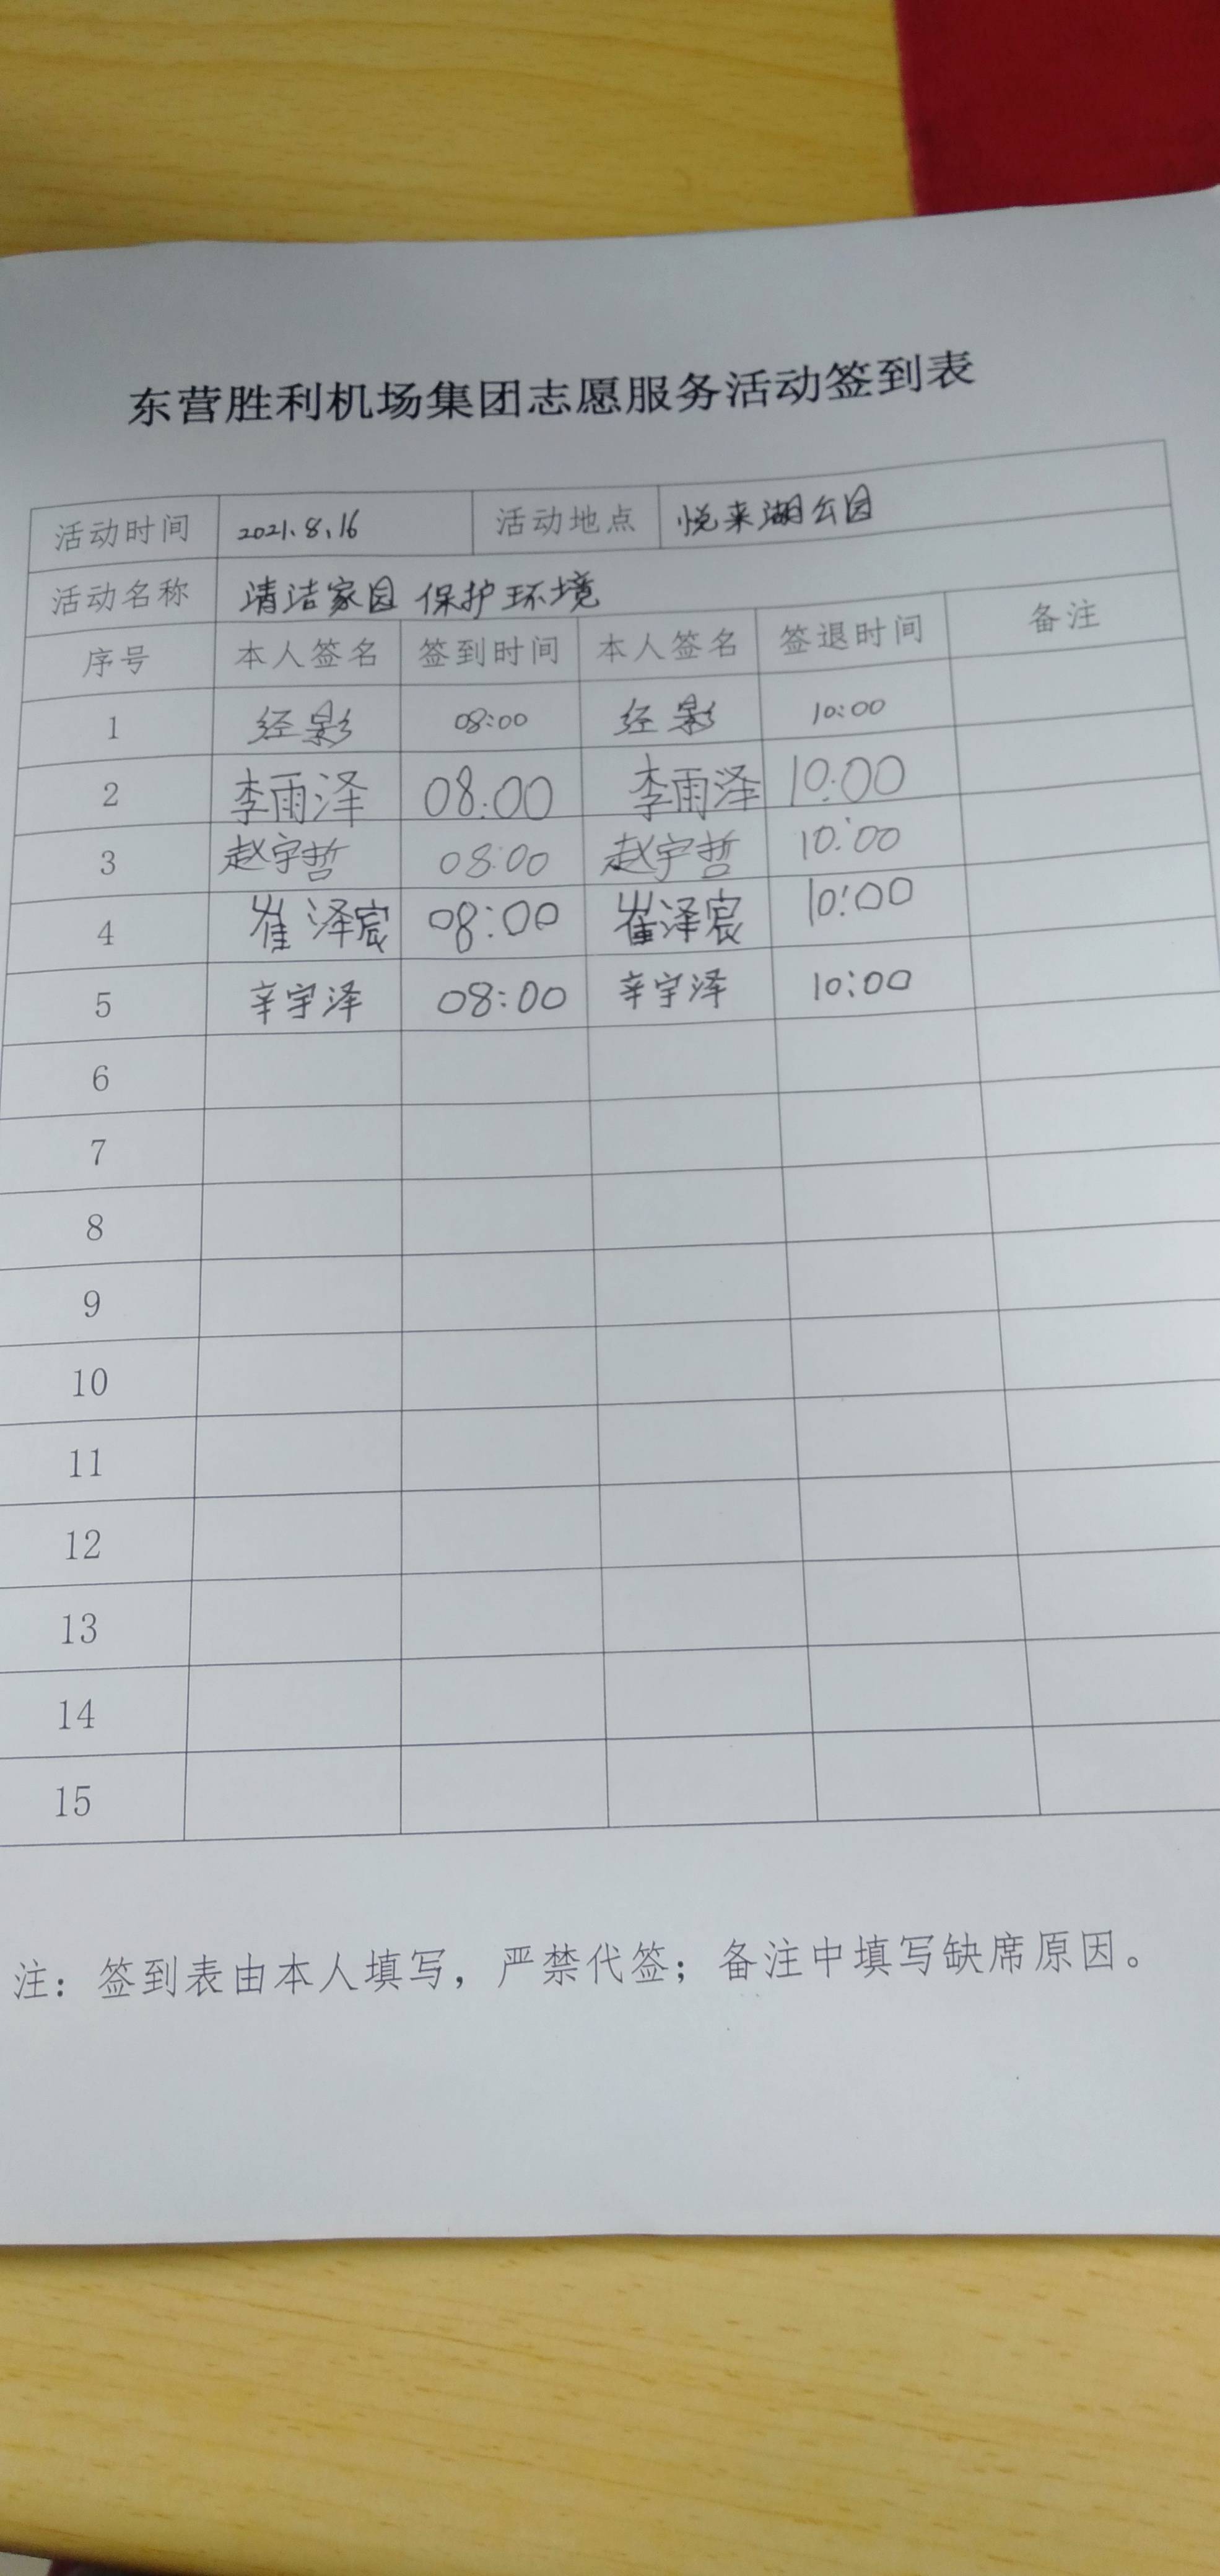 东营胜利机场集团志愿服务活动签到表
活动时间 2021.8.16 活动地点 悦来湖公园
活动名称 清洁家园 保护环境
序号 本人签名 签到时间 本人签名 签退时间 备注
1 经影 08:00 经影 10:00
2 李雨泽 08:00 李雨泽 10:00
3 赵宇哲 08:00 赵宇哲 10:00
4 崔泽宸 08:00 崔泽宸 10:00
5 辛宇泽 08:00 辛宇泽 10:00
6
7
8
9
10
11
12
13
14
15
注：签到表由本人填写，严禁代签；备注中填写缺席原因。